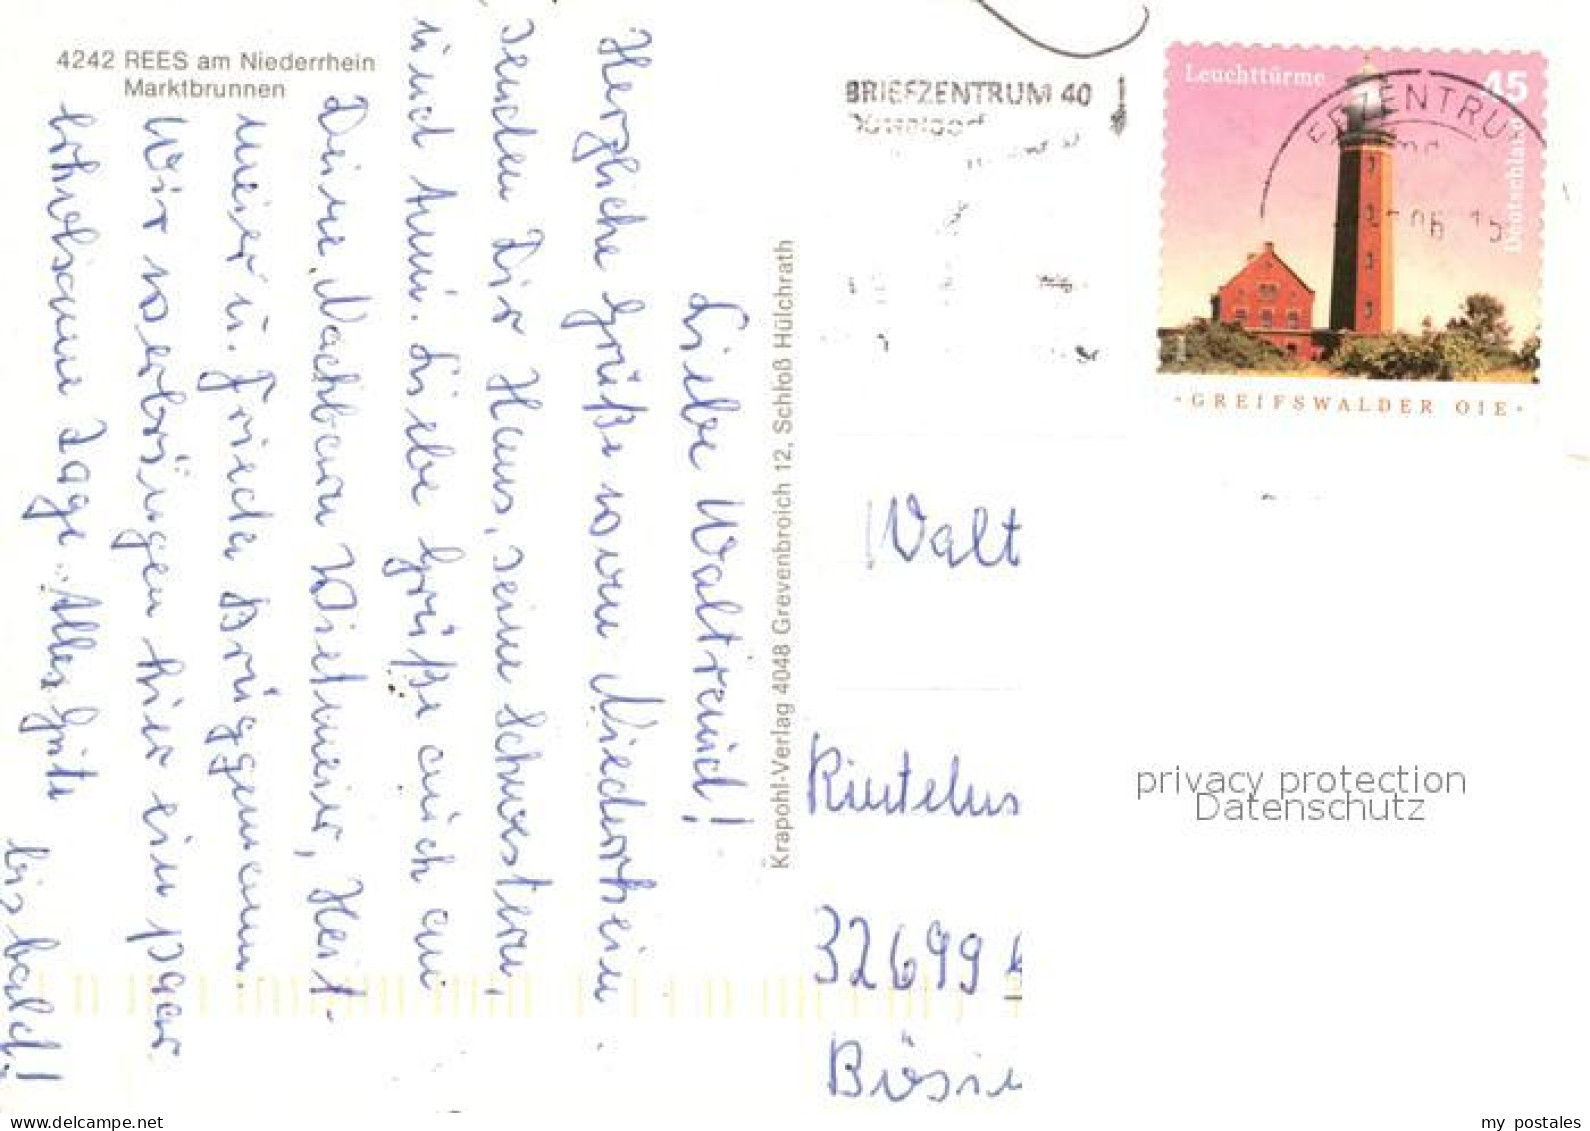 4242 REES am Niederrhein
Marktbrunnen
Liebe Waltraud!
Herzliche Grüße vom Niederrhein
senden Dir Hans, seine Schwestern
und Anni. Liebe Grüße auch an
Deine Nachbarn Wietmeier, Heit-
meier u. Frieda Brüggemann.
Wir verbringen hier ein paar
erholsame Tage. Alles Gute
bis bald!
Krapohl-Verlag 4048 Grevenbroich 12, Schloß Hülchrath
BRIEFZENTRUM 40
Leuchttürme
45
Deutschland
GREIFSWALDER OIE
Walt
Rintelns
32699
Bösin
privacy protection
Datenschutz
www.delcampe.net
my_postales